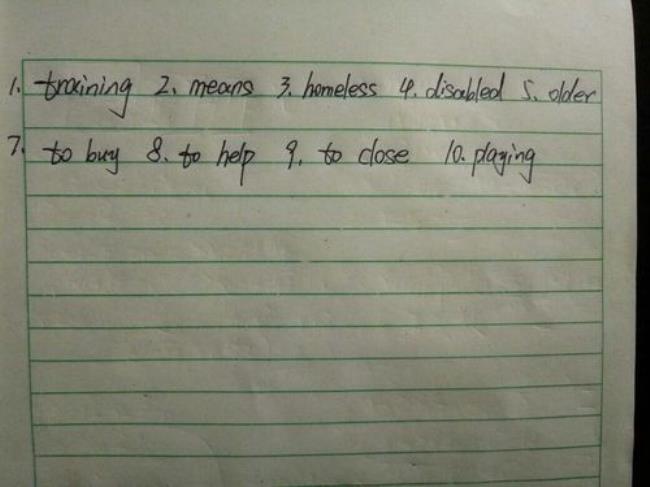 1. training 2. means 3. homeless 4. disabled 5. older
7. to buy 8. to help 9. to close 10. playing